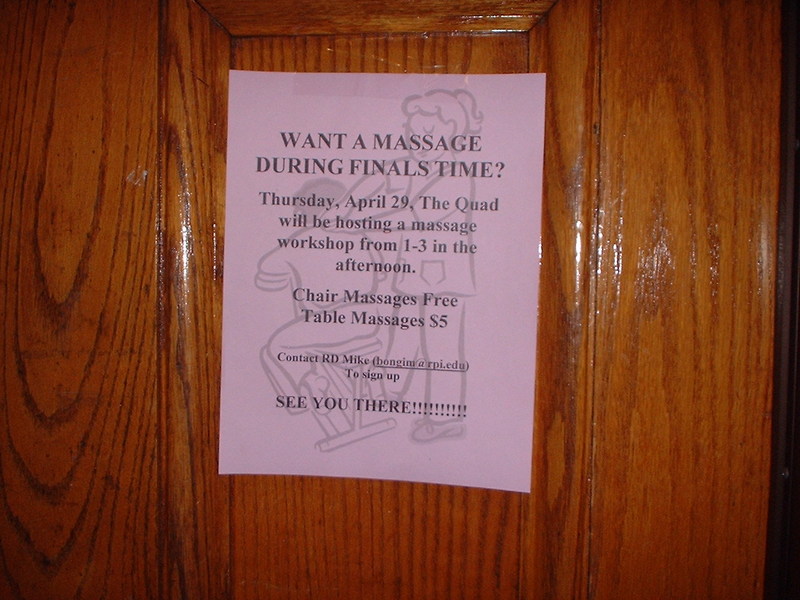 WANT A MASSAGE
DURING FINALS TIME?
Thursday, April 29, The Quad
will be hosting a massage
workshop from 1-3 in the
afternoon.
Chair Massages Free
Table Massages $5
Contact RD Mike (bongim@rpi.edu)
To sign up
SEE YOU THERE!!!!!!!!!!